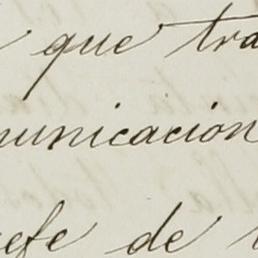 que tra
municación
efe de